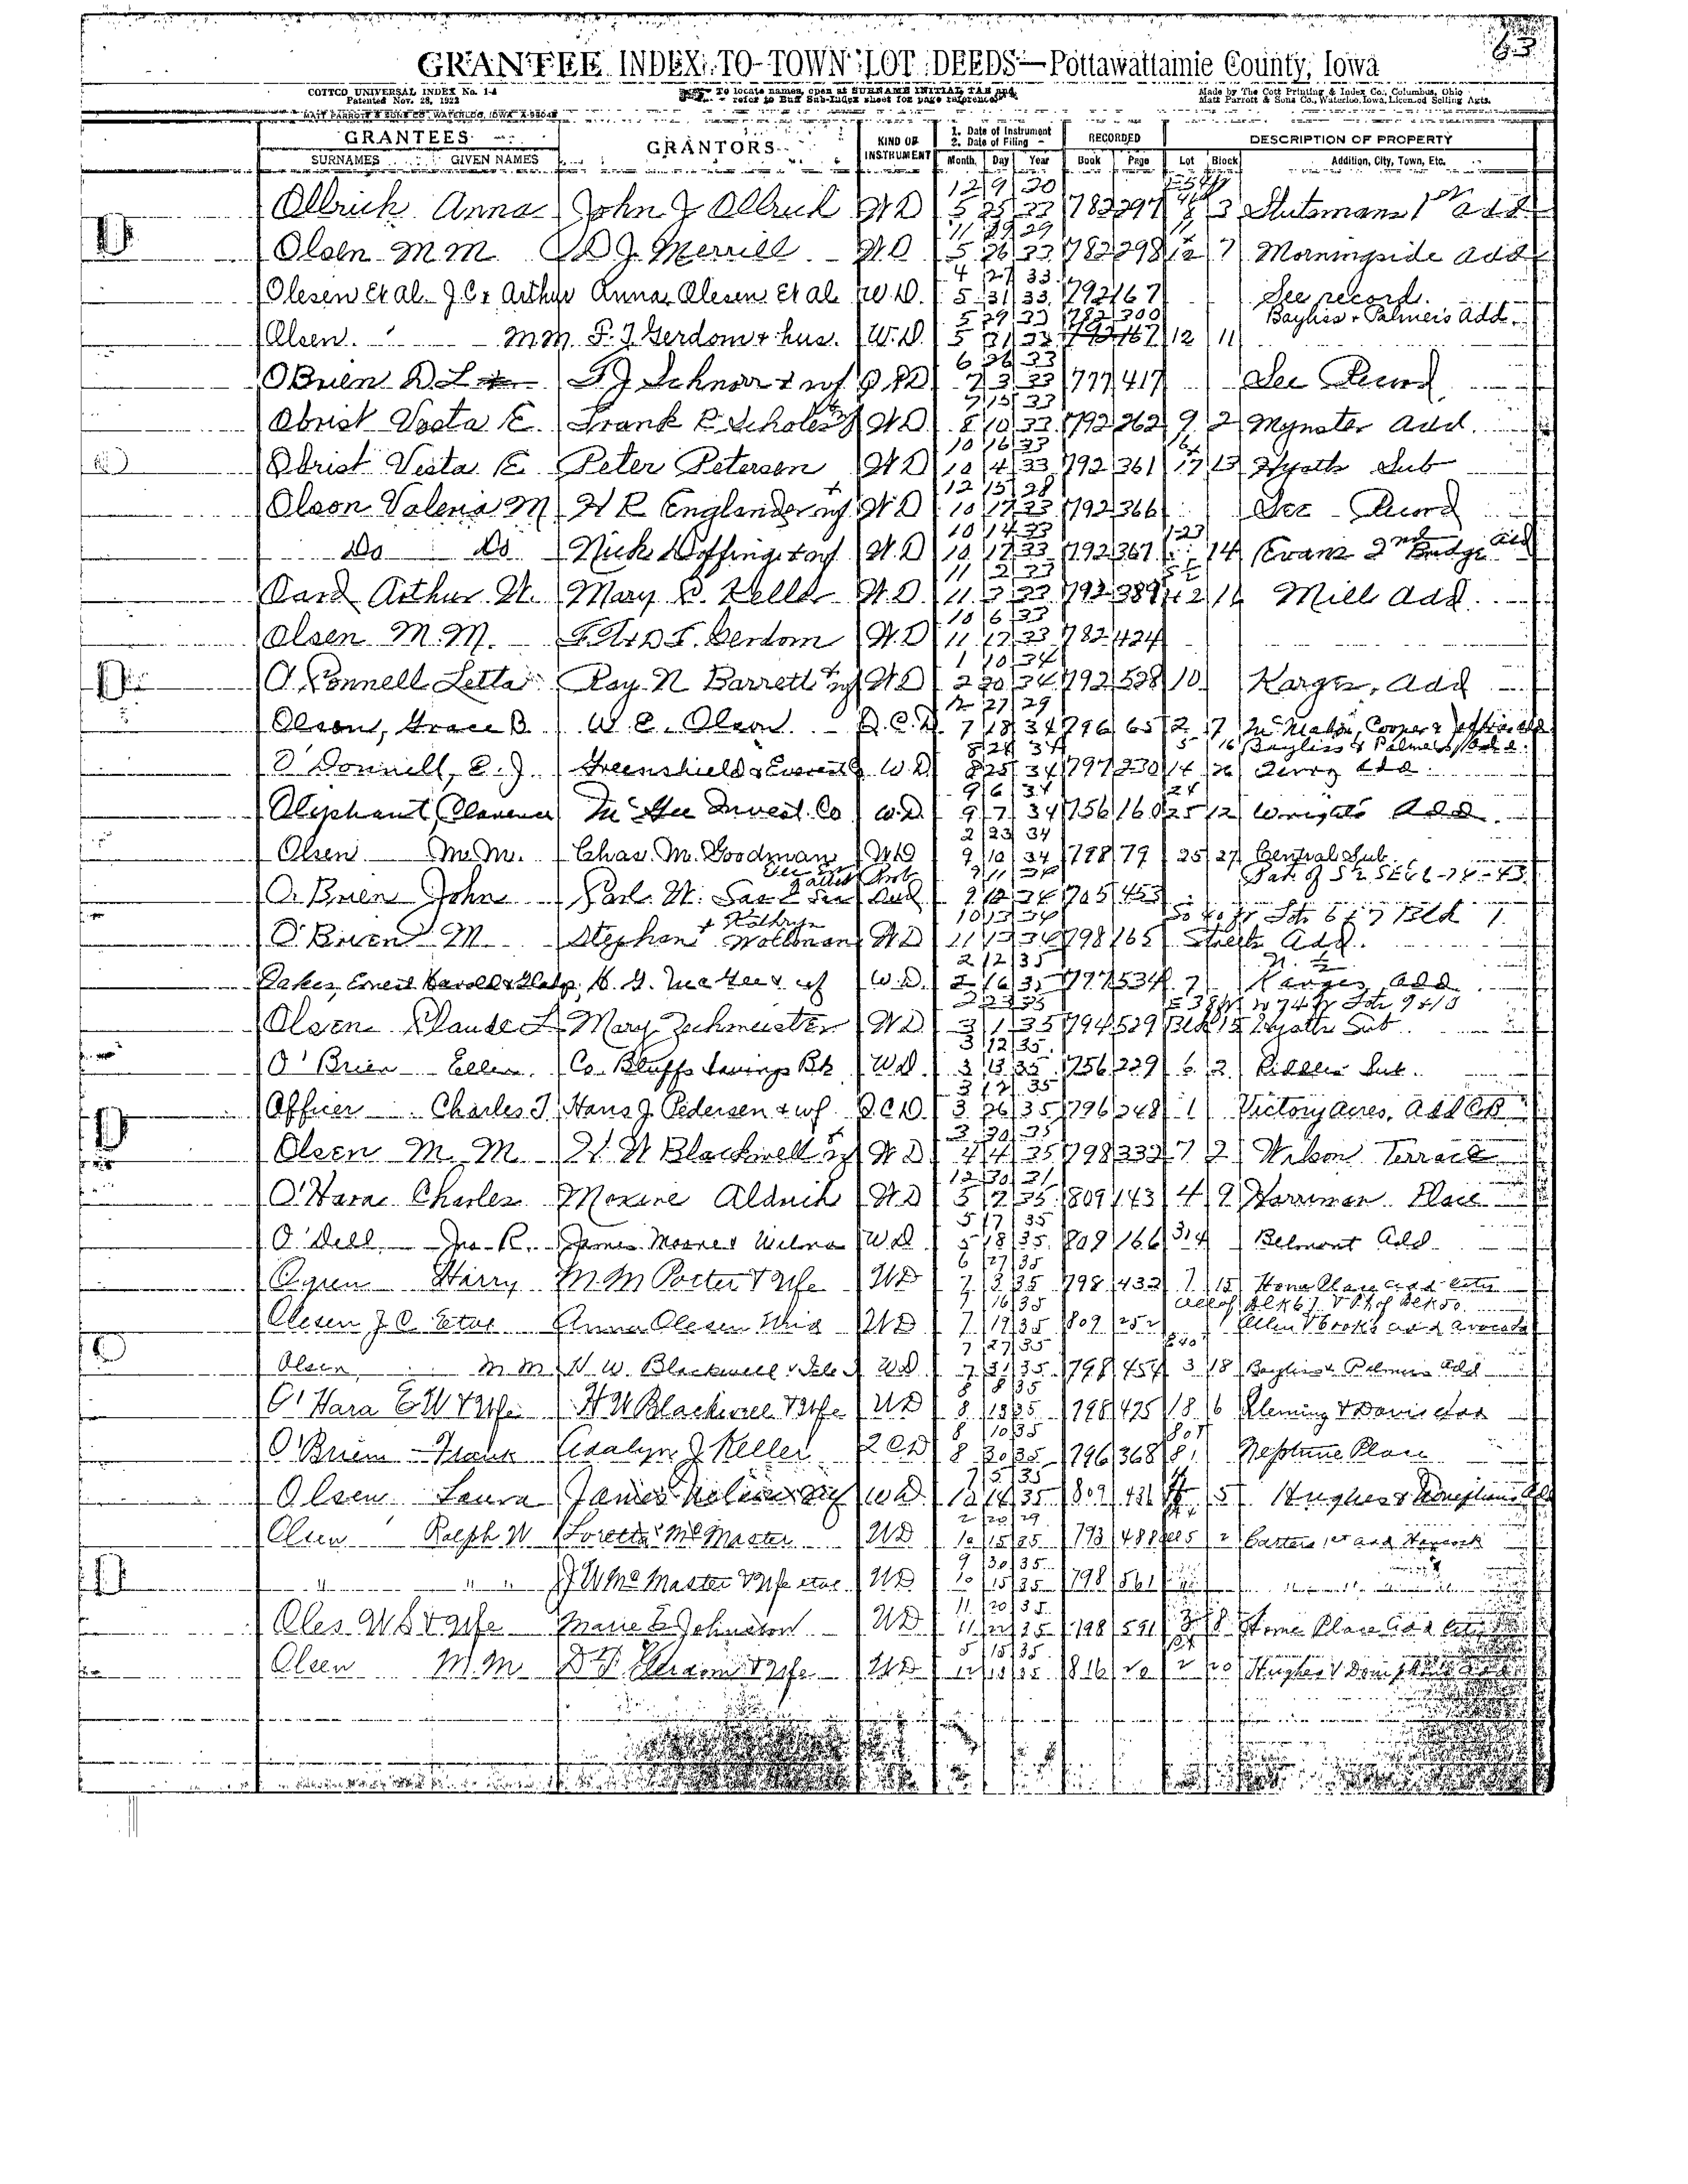 63
GRANTEE INDEX TO TOWN LOT DEEDS—Pottawattamie County, Iowa
COTTCO UNIVERSAL INDEX No. 1-A
Patented Nov. 28, 1922
To locate names, open at SURNAME INITIAL TAB and
refer to Buff Sub-Index sheet for page reference
Made by The Cott Printing & Index Co., Columbus, Ohio
Matt Parrott & Sons Co., Waterloo, Iowa, Licensed Selling Agts.
MATT PARROTT & SONS CO., WATERLOO, IOWA
GRANTEES GRANTORS KIND OF INSTRUMENT 1. Date of Instrument 2. Date of Filing RECORDED DESCRIPTION OF PROPERTY
SURNAMES GIVEN NAMES Month Day Year Book Page Lot Block Addition, City, Town, Etc.
12 9 20
Ollrich Anna John J Ollrich WD 5 25 33 782 297 8 3 Stutsmans 1st add
11 29 29
Olsen M M D J Merrill WD 5 26 33 782 298 12 7 Morningside add
4 27 33
Olesen Et al J.C & Arthur Anna Olesen Et al W.D. 5 31 33 792 167 See record
5 29 33 782 300 Bayliss & Palmers Add.
Olsen M M F. J. Gerdom & hus. W.D. 5 31 33 792 167 12 11
6 26 33
OBrien D L J Schnorr & wf QCD 7 3 33 777 417 See Record
7 15 33
Obrist Vesta E. Frank R Scholes & wf WD 8 10 33 792 262 9 2 Mynster Add.
10 16 33
Obrist Vesta E. Peter Petersen WD 10 4 33 792 361 17 13 Hyatts Sub
12 15 28
Olson Valeria M H R Englander & wf WD 10 17 33 792 366 See Record
10 14 33 1-23
Do Do Nick Doffing & wf W.D 10 17 33 792 367 14 Evans 2nd Bridge Add
11 2 33
Oard Arthur W. Mary C. Kelle WD 11 3 33 792 389 12 16 Mill Add.
10 6 33
Olsen M.M. F. Gerdom W.D 11 17 33 782 424
1 10 34
O Connell Letta Ray N Barrett & wf WD 2 20 34 792 528 10 Karges, Add
12 27 29
Olson, Grace B. W. E. Olson Q.C.D. 7 18 34 796 65 2 7 McMahon, Cooper & Jefferis add
8 24 34 5 16 Bayliss & Palmers Add.
O'Donnell, E. J. Greenshields & Everest Co W.D 8 25 34 797 230 14 26 Terry Add.
9 6 34 24
Olyphant, Clarence McGee Invest. Co W.D. 9 7 34 756 160 25 12 Wright's Add.
2 23 34
Olsen M. M. Chas. M. Goodman WD 9 10 34 798 79 25 27 Central Sub.
9 11 34
O Brien John Carl W. 9 12 34 705 453
& Kathryn 10 13 34 So 40 ft Lots 6 & 7 Blk 1
O'Brien M Stephan Wollman WD 11 13 34 798 165 Streets Add.
2 12 35 N. ½
Oakes, Ernest Harold & Gladys H. G. McGee & wf W.D. 2 16 35 797 534 7 Karges, Add
2 23 35
Olsen Claude L Mary Zechmeister WD 3 1 35 794 529 Blk 15 Hyatts Sub.
3 12 35
O'Brien Ellen Co. Bluffs Savings Bk WD 3 13 35 756 229 6 2 Riddles Sub.
3 12 35
Officer Charles T. Hans J. Pedersen & wf Q C D. 3 26 35 796 248 1 Victory Acres, Add CB
3 30 35
Olsen M. M. H W Blackwell & wf WD 4 4 35 798 332 7 2 Wilson Terrace
12 30 31
O'Hara Charles Maxine Aldrich WD 5 2 35 809 143 4 9 Harriman Place
5 17 35
O'Dell Jno. R. James Moore & Wilma WD 5 18 35 809 166 3&4 Belmont Add
6 27 35
Ogren Harry M. M Porter & Wife WD 7 3 35 798 432 7 15 Home Place add City
7 16 35 all of Blk 67 & Pt of Blk 50
Olesen J. C. Etal Anna Olesen Wid WD 7 19 35 809 252 Allen & Cooks add Avoca
7 27 35 E 40'
Olsen M M H. W. Blackwell WD 7 31 35 798 454 3 18 Bayliss & Palmers Add
8 8 35
O'Hara E W & Wife H W Blackwell & Wife WD 8 13 35 798 475 18 6 Fleming & Davis Add
8 10 35
O'Brien Frank Adalyn J Keller QCD 8 30 35 796 368 81 Neptune Place
7 5 35
Olsen Laura James & wf WD 12 14 35 809 431 5 Hughes & Doniphans Add
2 20 29
Olsen Ralph W Loretta McMaster WD 10 15 35 793 488 2 Carters 1st add Hancock
9 30 35
" " " J W McMaster & Wife etal WD 10 15 35 798 561 " " " "
11 20 35
Oles W S & Wife Marie E Johnston WD 11 22 35 798 591 3 8 Home Place Add City
5 15 35
Olsen M. M. D F Gerdom & Wife WD 12 18 35 816 20 2 20 Hughes & Doniphans Add